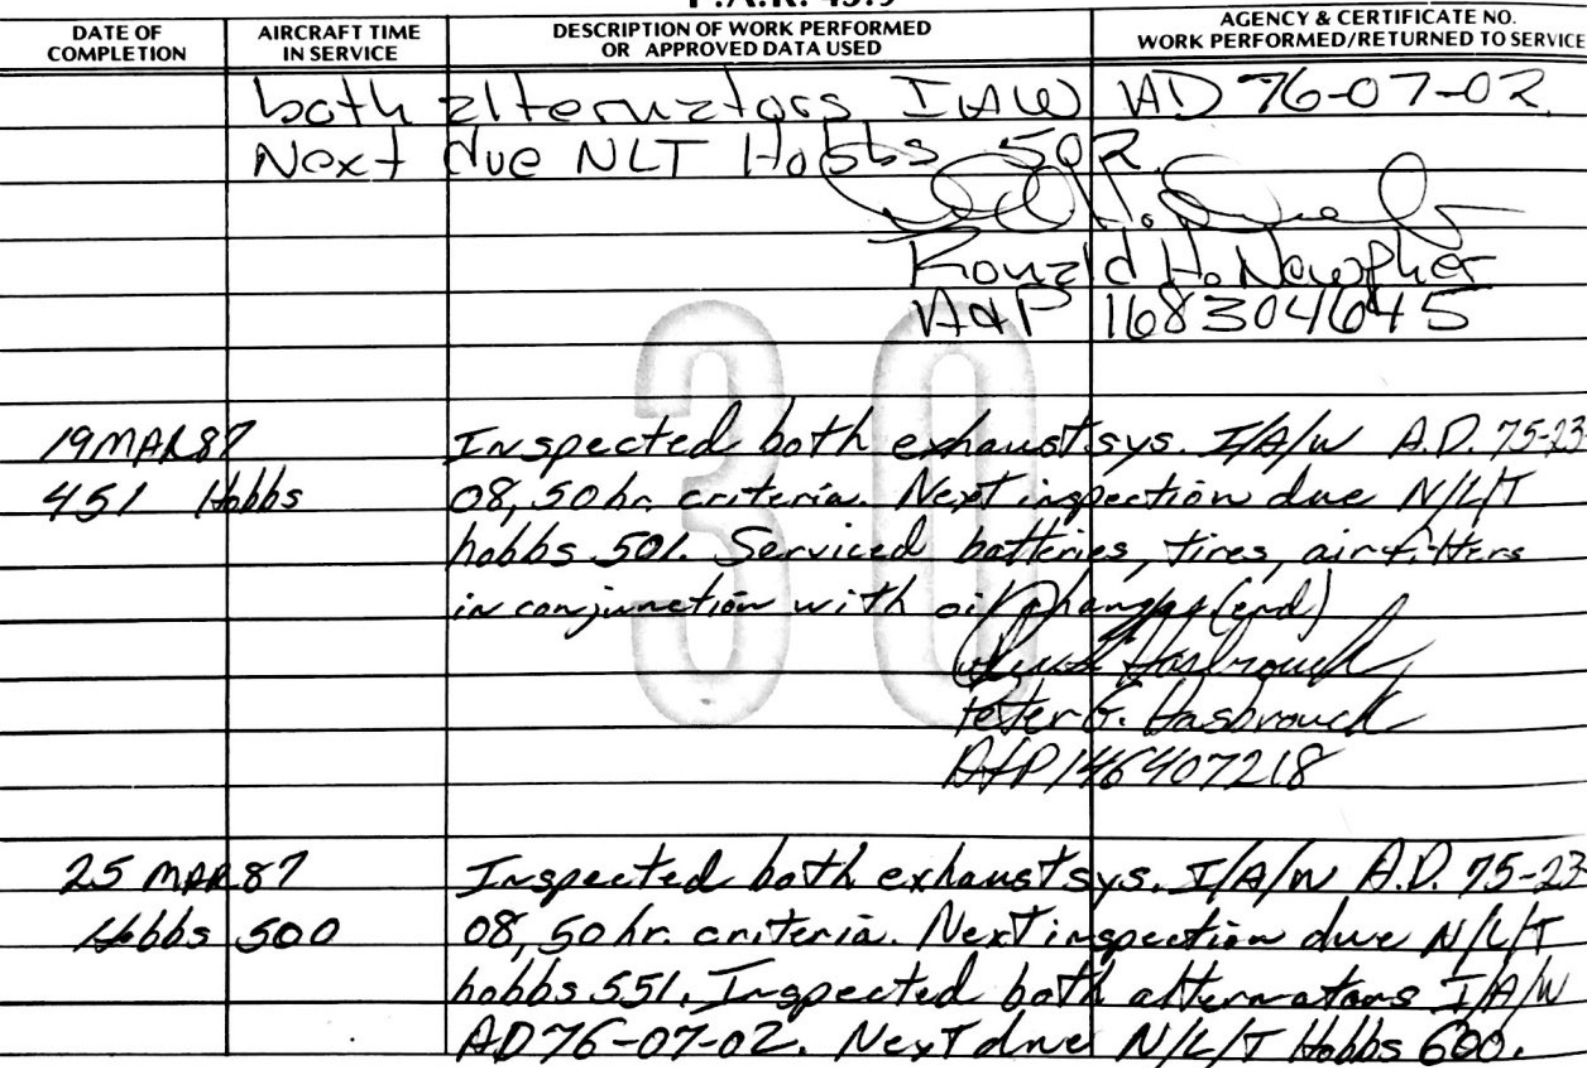 F.A.R. 43.9
DATE OF COMPLETION
AIRCRAFT TIME IN SERVICE
DESCRIPTION OF WORK PERFORMED OR APPROVED DATA USED
AGENCY & CERTIFICATE NO. WORK PERFORMED/RETURNED TO SERVICE
both alternators IAW AD 76-07-02
Next due NLT Hobbs 502
Ronald H. Newpher
A&P 168304645
30
19 MAR 87 Inspected both exhaust sys. I/A/W A.D. 75-23-
451 Hobbs 08, 50 hr. criteria. Next inspection due N/L/T
hobbs 501. Serviced batteries, tires, air filters
in conjunction with oil (end)
Hasbrouck
Lester G. Hasbrouck
A&P 146407218
25 MAR 87 Inspected both exhaust sys. I/A/W A.D. 75-23-
Hobbs 500 08, 50 hr. criteria. Next inspection due N/L/T
hobbs 551. Inspected both alternators I/A/W
AD 76-07-02. Next due N/L/T Hobbs 600.